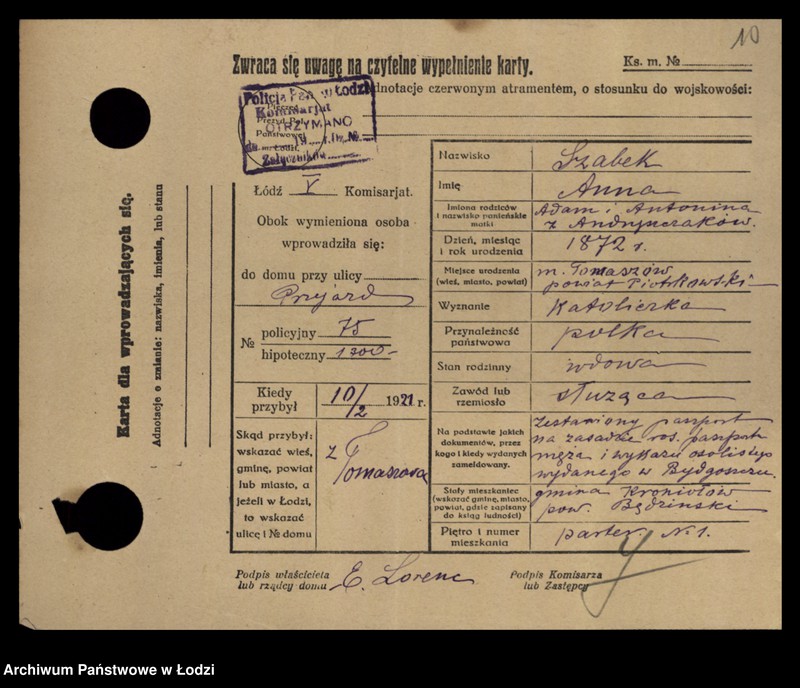 10
Zwraca się uwagę na czytelne wypełnienie karty.
Ks. m. №
Adnotacje czerwonym atramentem, o stosunku do wojskowości:
Policja Pań. w Łodzi
Komisarjat
OTRZYMANO
Załączników
Karta dla wprowadzających się.
Adnotacje o zmianie: nazwiska, imienia, lub stanu
Łódź V Komisarjat.
Obok wymieniona osoba
wprowadziła się:
do domu przy ulicy
Przejazd
№ policyjny 75
hipoteczny 1300
Kiedy przybył 10/2 1921 r.
Skąd przybył:
wskazać wieś,
gminę, powiat
lub miasto, a
jeżeli w Łodzi,
to wskazać
ulicę i № domu
z Tomaszowa
Nazwisko Szabek
Imię Anna
Imiona rodziców
i nazwisko panieńskie
matki
Adam i Antonina
z Andrzejczaków.
Dzień, miesiąc
i rok urodzenia
1872 r.
Miejsce urodzenia
(wieś, miasto, powiat)
m. Tomaszów
powiat Piotrkowski
Wyznanie katoliczka
Przynależność
państwowa
polka
Stan rodzinny wdowa
Zawód lub
rzemiosło
służąca
Na podstawie jakich
dokumentów, przez
kogo i kiedy wydanych
zameldowany.
paszport
na zasadzie ros. paszport
męża i wykazu osobistego
wydanego w Bydgoszczu.
Stały mieszkaniec
(wskazać gminę, miasto,
powiat, gdzie zapisany
do ksiąg ludności)
gmina
pow. Będziński
Piętro i numer
mieszkania
parter. N. 1.
Podpis właściciela
lub rządcy domu
E. Lorenc
Podpis Komisarza
lub Zastępcy
Archiwum Państwowe w Łodzi